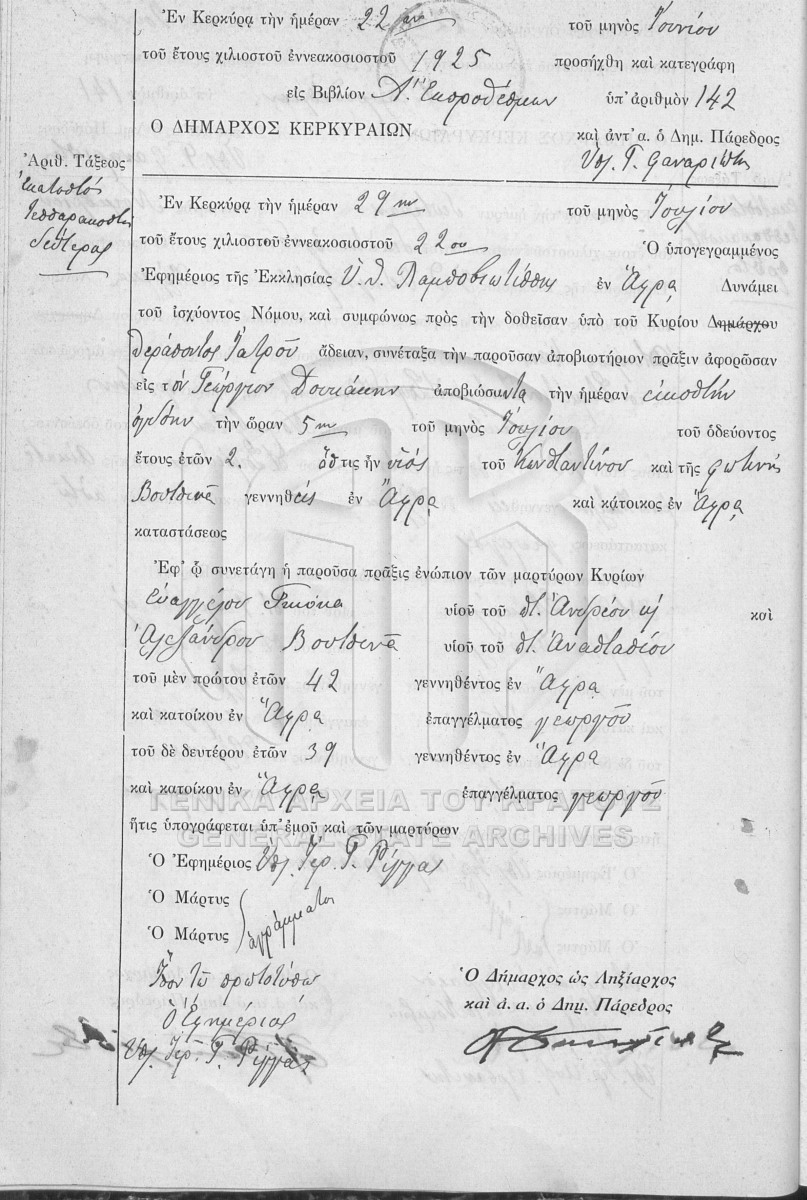 Ἐν Κερκύρᾳ τὴν ἡμέραν 22αν τοῦ μηνὸς Ἰουνίου
τοῦ ἔτους χιλιοστοῦ ἐννεακοσιοστοῦ 1925 προσήχθη καὶ κατεγράφη
εἰς Βιβλίον Α. Ἐκπροθέσμων ὑπ' ἀριθμὸν 142
Ο ΔΗΜΑΡΧΟΣ ΚΕΡΚΥΡΑΙΩΝ καὶ ἀντ' α. ὁ Δημ. Πάρεδρος
Ὑπ. Γ. Φαναριώτης
Ἀριθ. Τάξεως
ἑκατοστὸς
τεσσαρακοστὴ
δεύτερας
Ἐν Κερκύρᾳ τὴν ἡμέραν 29ην τοῦ μηνὸς Ἰουλίου
τοῦ ἔτους χιλιοστοῦ ἐννεακοσιοστοῦ 22ου Ὁ ὑπογεγραμμένος
Ἐφημέριος τῆς Ἐκκλησίας Ὑ. Θ. Λαμποβιωτίσσης ἐν Ἄγρᾳ Δυνάμει
τοῦ ἰσχύοντος Νόμου, καὶ συμφώνως πρὸς τὴν δοθεῖσαν ὑπὸ τοῦ Κυρίου Δημάρχου
θεράποντος Ἰατροῦ ἄδειαν, συνέταξα τὴν παροῦσαν ἀποβιωτήριον πρᾶξιν ἀφορῶσαν
εἰς τὸν Γεώργιον Δουκάκην ἀποβιώσαντα τὴν ἡμέραν εἰκοστὴν
ὀγδόην τὴν ὥραν 5ην τοῦ μηνὸς Ἰουλίου τοῦ ὁδεύοντος
ἔτους ἐτῶν 2. ὅστις ἦν υἱὸς τοῦ Κωνσταντίνου καὶ τῆς Φωτεινῆς
Βουτσινᾶ γεννηθεὶς ἐν Ἄγρᾳ καὶ κάτοικος ἐν Ἄγρᾳ
καταστάσεως
Ἐφ' ᾧ συνετάγη ἡ παροῦσα πρᾶξις ἐνώπιον τῶν μαρτύρων Κυρίων
Εὐαγγέλου Γκιόκα υἱοῦ τοῦ π. Ἀνδρέου καὶ
Ἀλεξάνδρου Βουτσινᾶ υἱοῦ τοῦ π. Ἀναστασίου
τοῦ μὲν πρώτου ἐτῶν 42 γεννηθέντος ἐν Ἄγρᾳ
καὶ κατοίκου ἐν Ἄγρᾳ ἐπαγγέλματος γεωργοῦ
τοῦ δὲ δευτέρου ἐτῶν 39 γεννηθέντος ἐν Ἄγρᾳ
καὶ κατοίκου ἐν Ἄγρᾳ ἐπαγγέλματος γεωργοῦ
ΓΕΝΙΚΑ ΑΡΧΕΙΑ ΤΟΥ ΚΡΑΤΟΥΣ
ἥτις ὑπογράφεται ὑπ' ἐμοῦ καὶ τῶν μαρτύρων
GENERAL STATE ARCHIVES
Ὁ Ἐφημέριος Ὑπ. Ἱερ. Γ. Ρίγγας
Ὁ Μάρτυς
ἀγράμματοι
Ὁ Μάρτυς
Ἴσον τῷ πρωτοτύπῳ
Ὁ Ἐφημέριος
Ὑπ. Ἱερ. Γ. Ρίγγας
Ὁ Δήμαρχος ὡς Ληξίαρχος
καὶ ἀ. α. ὁ Δημ. Πάρεδρος